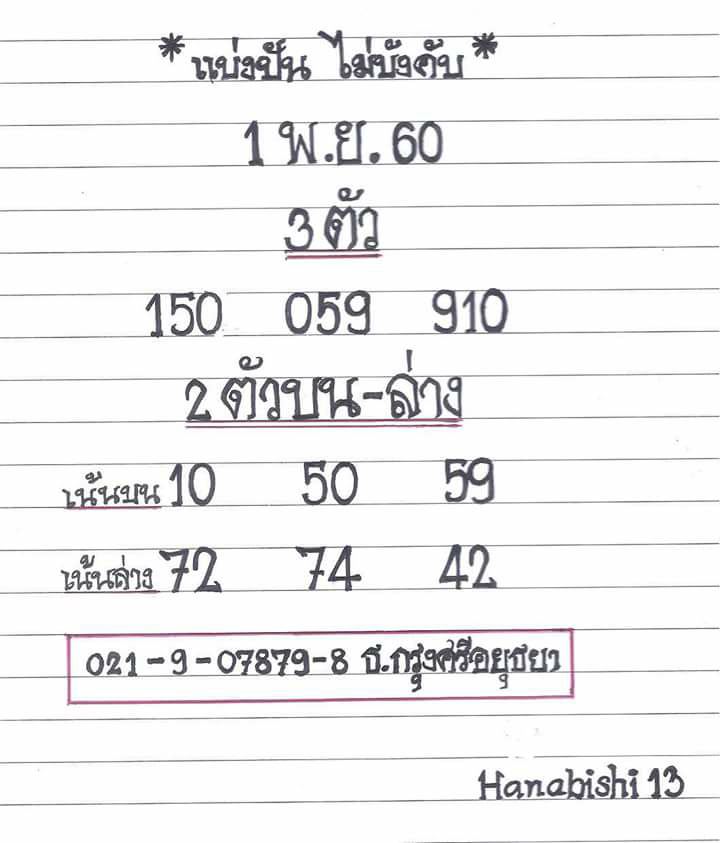 *แบ่งปัน ไม่บังคับ*
1 พ.ย. 60
3 ตัว
150 059 910
2 ตัวบน-ล่าง
เน้นบน 10 50 59
เน้นล่าง 72 74 42
021-9-07879-8 ธ.กรุงศรีอยุธยา
Hanabishi 13